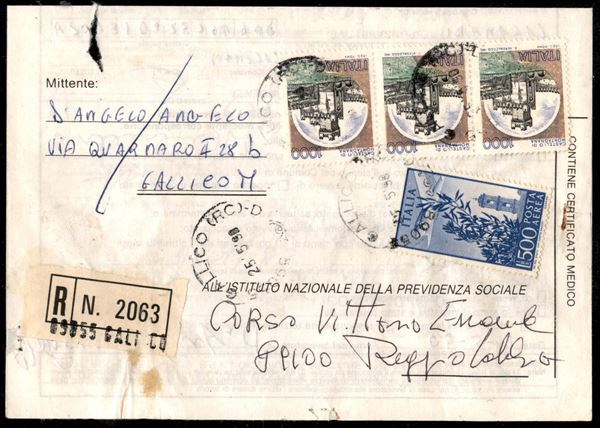 Mittente:
D'ANGELO ANGELO
VIA QUARNARO I 28 b
GALLICO M
ITALIA
1000
CASTELLO DI
MONTAGNANA
ITALIA
1000
CASTELLO DI
MONTAGNANA
ITALIA
1000
CASTELLO DI
MONTAGNANA
ITALIA
POSTA
AEREA
L.500
GALLICO (RC)-D
25 5 98
CONTIENE CERTIFICATO MEDICO
R N. 2063
89055 GALLICO
ALL'ISTITUTO NAZIONALE DELLA PREVIDENZA SOCIALE
CORSO Vittorio Emanuele
89100 Reggio Calabria